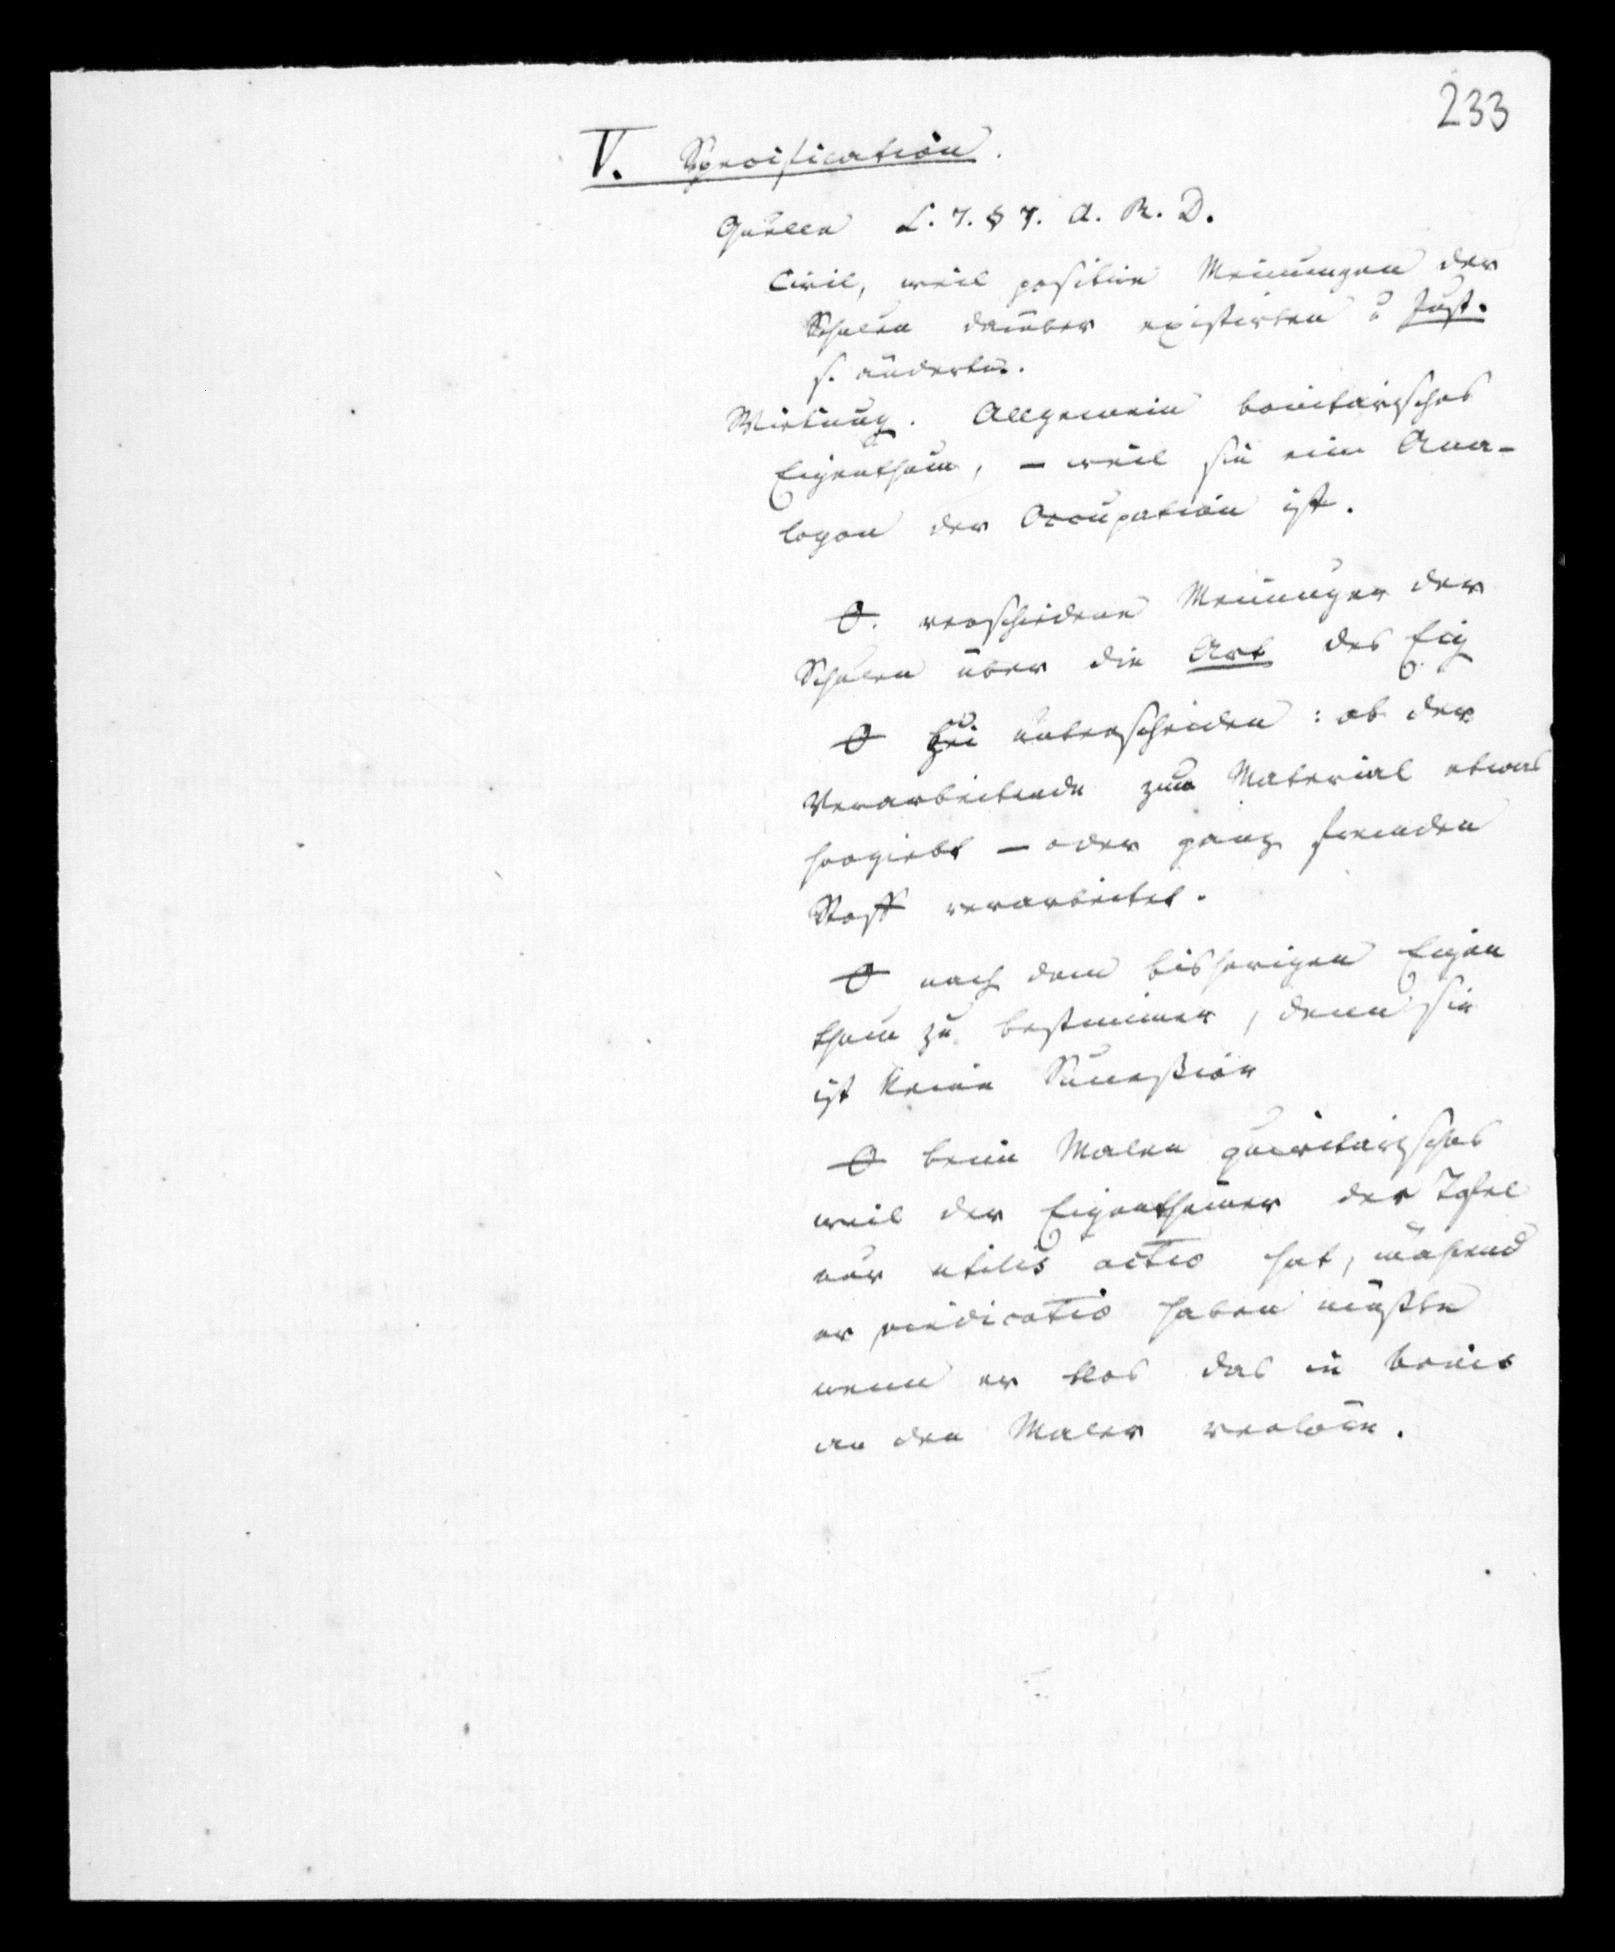 233
V. Specification.
Quelle L. 7. § 7. A. R. D.
Civil, weil positive Meinungen der
Schulen darüber existirten u Just.
s. änderte.
Wirkung. Allgemein bonitarisches
Eigenthum, – weil sie ein Ana-
logon der Occupation ist.
O. verschiedene Meinungen der
Schulen über die Art des Eig
O zu unterscheiden: ob der
Verarbeitende zum Material etwas
hergiebt – oder ganz fremden
Stoff verarbeitet.
O nach dem bisherigen Eigen
thum zu bestimmen, denn sie
ist keine Succeßion
O beim Malen quiritarisches
weil der Eigenthümer der Tafel
nur utilis actio hat, während
er vindicatio haben müßte
wenn er blos das in bonis
an den Maler verlöre.